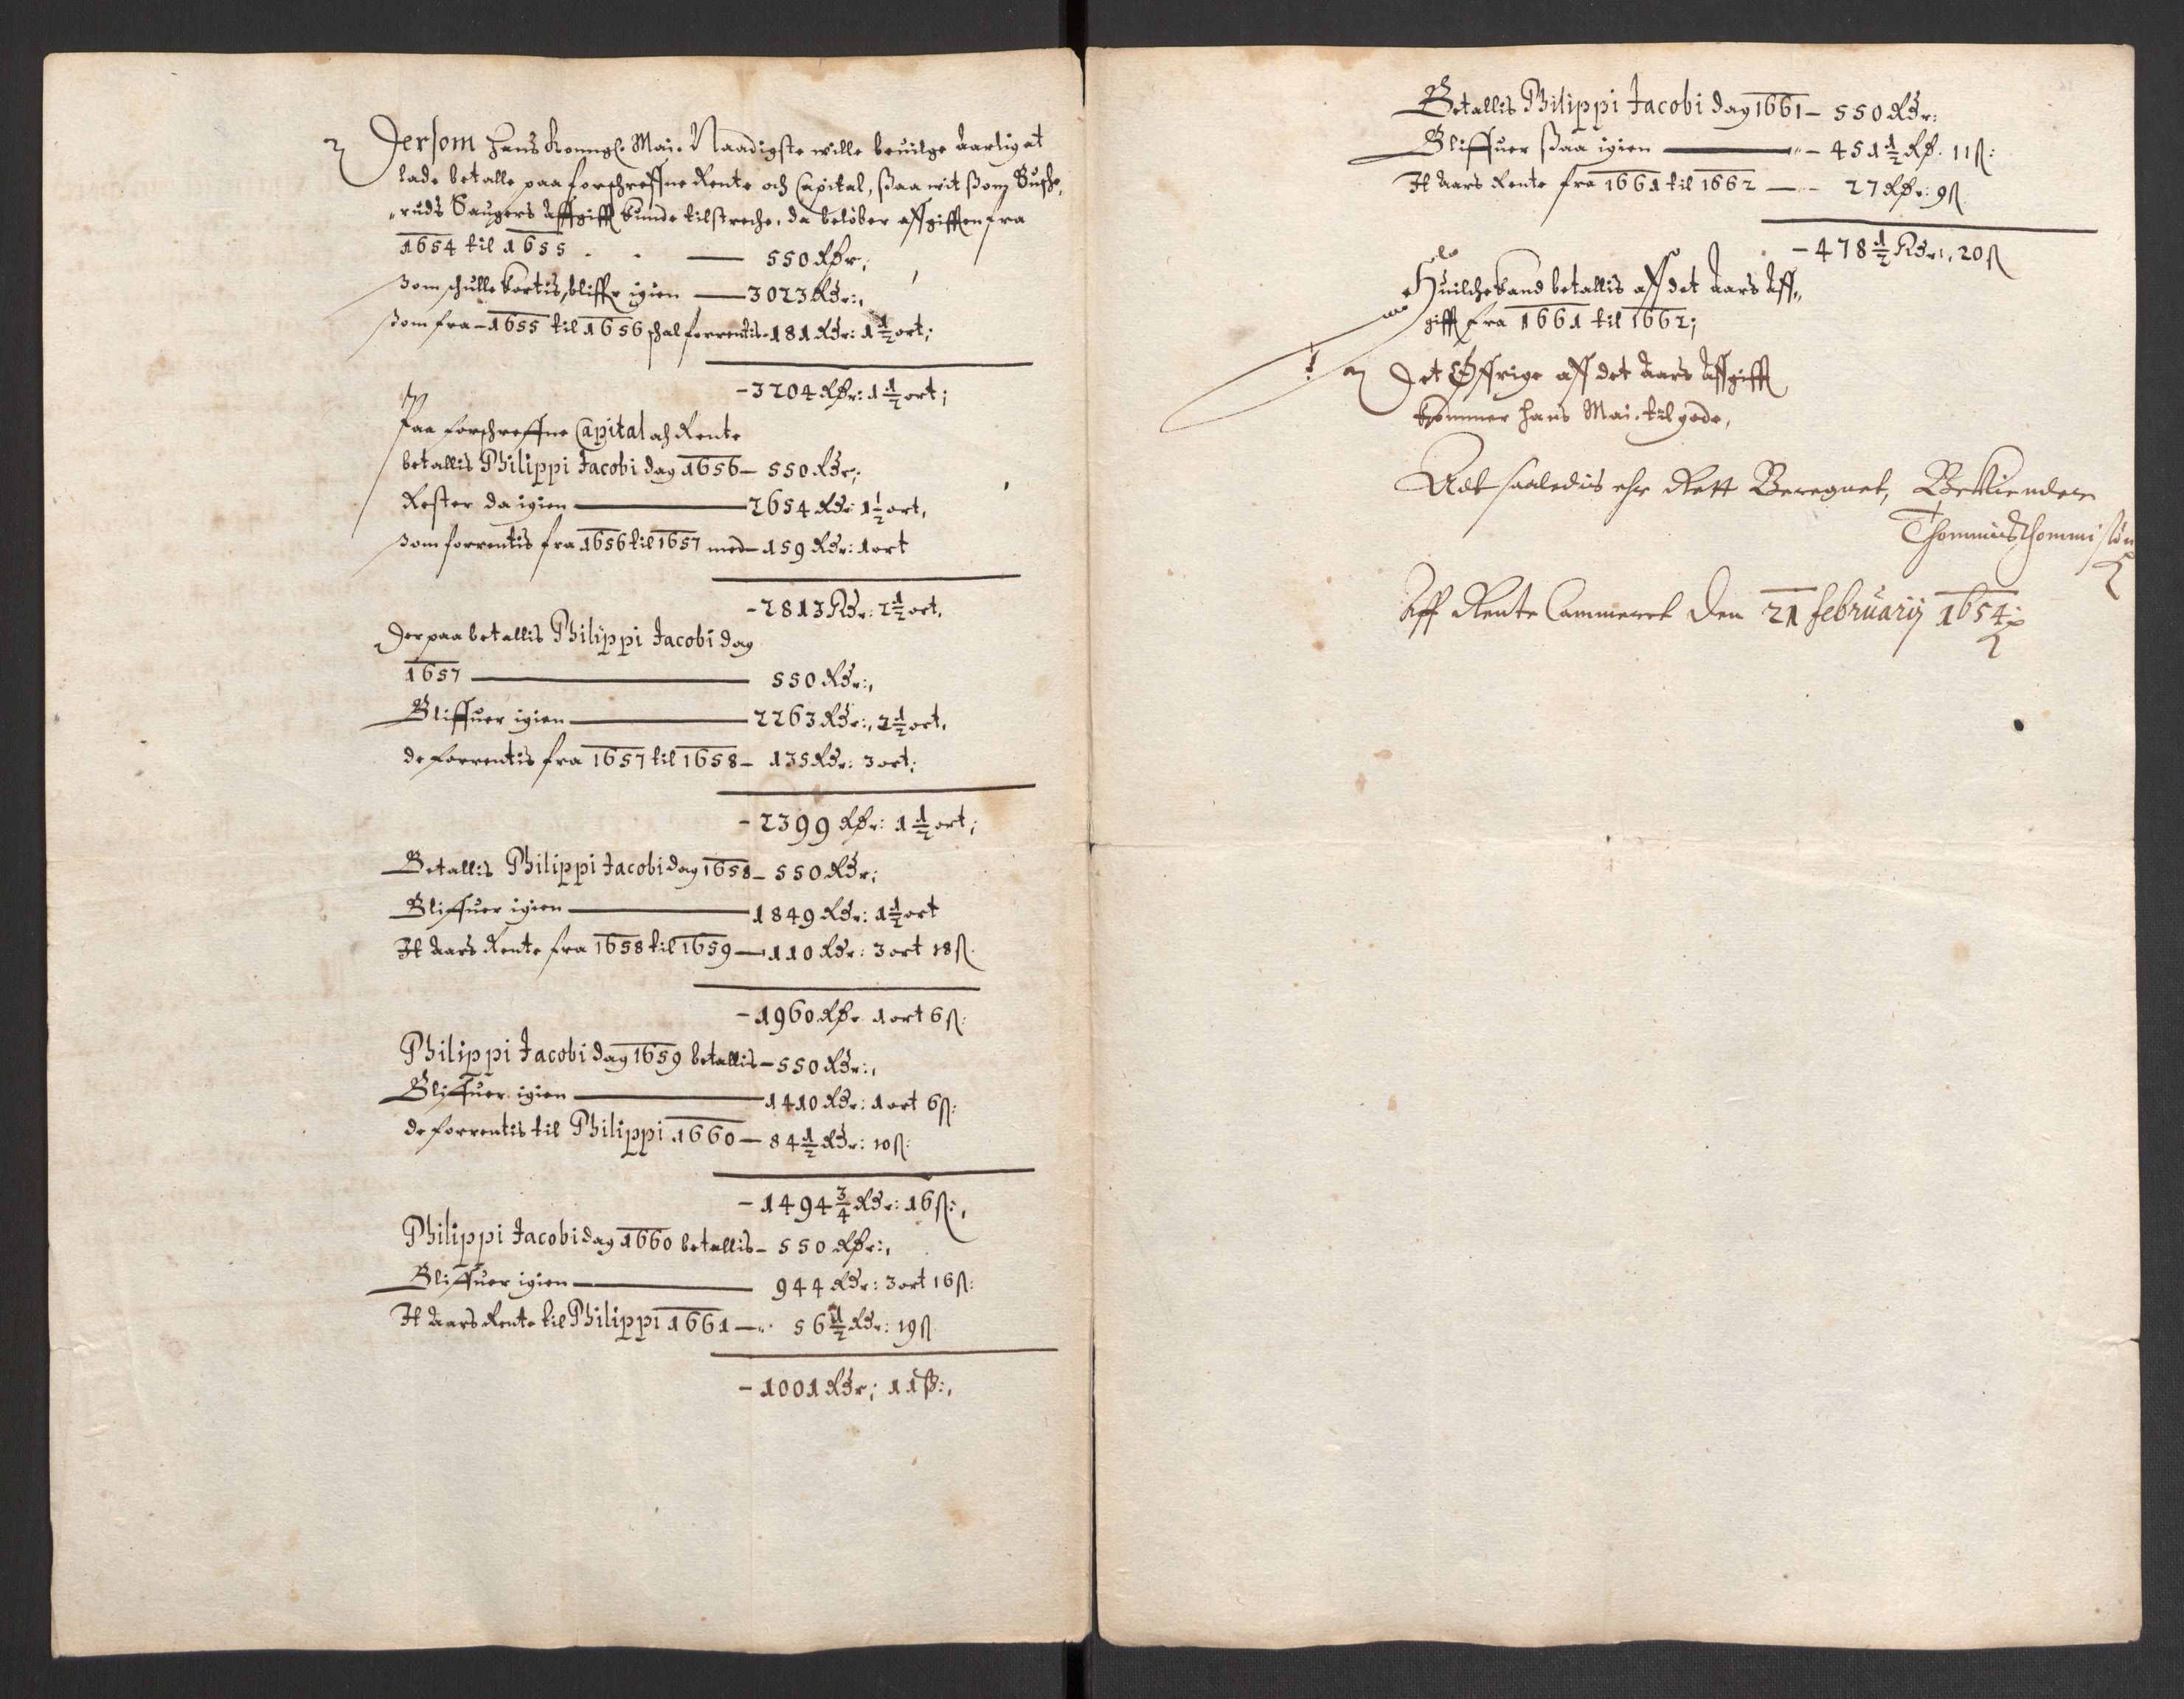 Dersom Hans Konngl. Mai. Naadigste wille beuilge Aarlig at
lade betalle paa forschreffne Rente och Capital, ßaa wit ßom Buske,,
,,ruds Saugers Affgifft kunde tilstreche, da beløber affgifften fra
1654 til 1655 . . — 550 Rdr;
ßom schulle kortis, bliffr igien — 3023 Rdr:,
ßom fra - 1655 til 1656 schal forrentis - 181 Rdr: 1½ ort;
- 3204 Rdr: 1½ ort;
Paa forschreffne Capital och Rente
betallis Philippi Jacobi dag 1656 - 550 Rdr;
Rester da igien — 2654 Rdr 1½ ort,
ßom forrentis fra 1656 til 1657 med - 159 Rdr: 1 ort
- 2813 Rdr: 2½ ort.
Der paa betallis Philippi Jacobi dag
1657 — 550 Rdr:,
Bliffuer igien — 2263 Rdr:, 2½ ort,
de forrentis fra 1657 til 1658 - 135 Rdr: 3 ort;
- 2399 Rdr: 1½ ort;
Betallis Philippi Jacobi dag 1658 - 550 Rdr;
Bliffuer igien — 1849 Rdr: 1½ ort
It Aars Rente fra 1658 til 1659 — 110 Rdr: 3 ort 18 ß.
- 1960 Rdr 1 ort 6 ß:
Philippi Jacobi dag 1659 betallis - 550 Rdr:,
Bliffuer igien — 1410 Rdr: 1 ort 6 ß:
de forrentis til Philippi 1660 — 84½ Rdr: 10 ß:
- 1494¾ Rdr: 16 ß:,
Philippi Jacobi dag 1660 betallis - 550 Rdr:,
Bliffuer igien — 944 Rdr: 3 ort 16 ß:
It Aars Rente til Philippi 1661 — 56½ Rdr: 19 ß
- 1001 Rdr; 11 ß:,
Betallis Philippi Jacobi dag 1661 - 550 Rdr:
Bliffuer ßaa igien — 451½ Rd. 11 ß:
It Aars Rente fra 1661 til 1662 — 27 Rdr: 9 ß
- 478½ Rdr:, 20 ß
Huilche kand betallis aff det Aars Aff,,
gifft fra 1661 til 1662;
Det Øffrige aff det Aars Affgifft
kommer Hans Mai. til gode,
Adt saaledis ehr Rett Beregnet, Bekiender
Thommis Thommisøn
Aff Rente Cammeret Den 21 februarij 1654